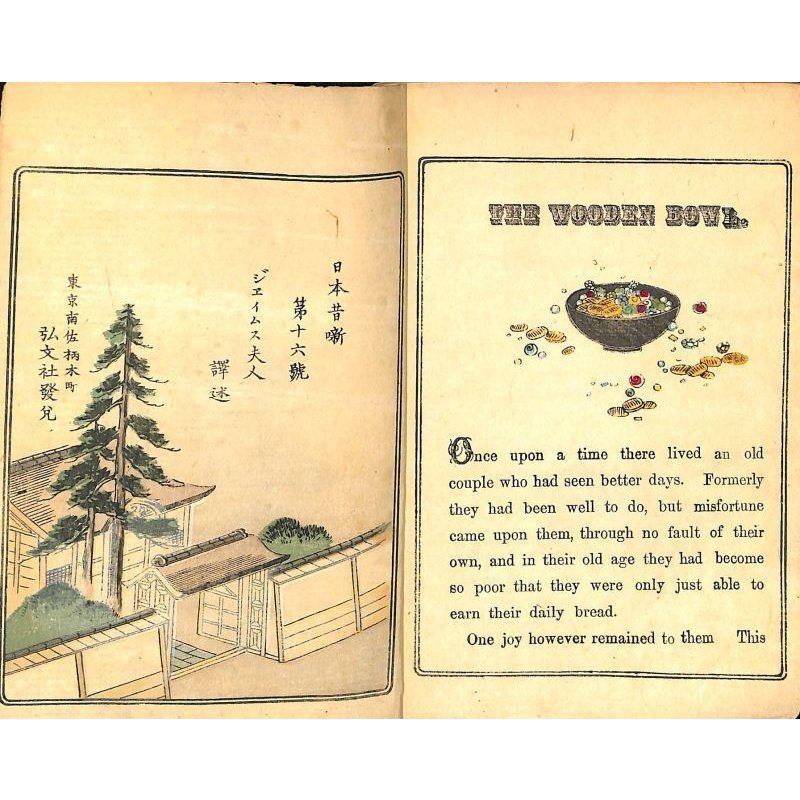 日本昔噺
第十六號
ジエイムス夫人
譯述
東京南佐柄木町
弘文社發兌
THE WOODEN BOWL.
Once upon a time there lived an old
couple who had seen better days. Formerly
they had been well to do, but misfortune
came upon them, through no fault of their
own, and in their old age they had become
so poor that they were only just able to
earn their daily bread.
One joy however remained to them This